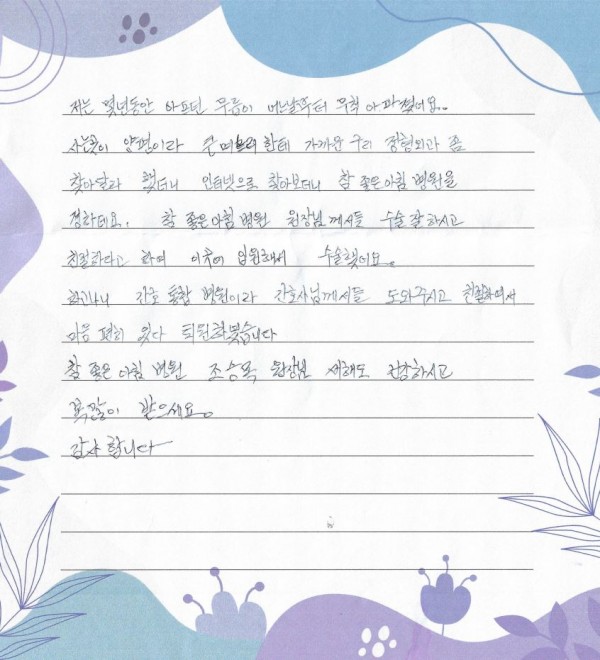 저는 몇년동안 아프던 무릎이 어느날부터 무척 아파졌어요..
사는곳이 양평이라 큰며느리 한테 가까운 구리 정형외과 좀
찾아달라 했더니 인터넷으로 찾아보더니 참 좋은아침 병원을
정하데요. 참 좋은아침 병원 원장님께서는 수술 잘하시고
친절하다고 하여 이곳에 입원해서 수술했어요.
하고나니 간호 통합 병원이라 간호사님께서들 도와주시고 친절하여서
마음 편히 있다 퇴원하겠습니다
참 좋은아침 병원 조승목 원장님 새해도 건강하시고
복많이 받으세요.
감사 합니다